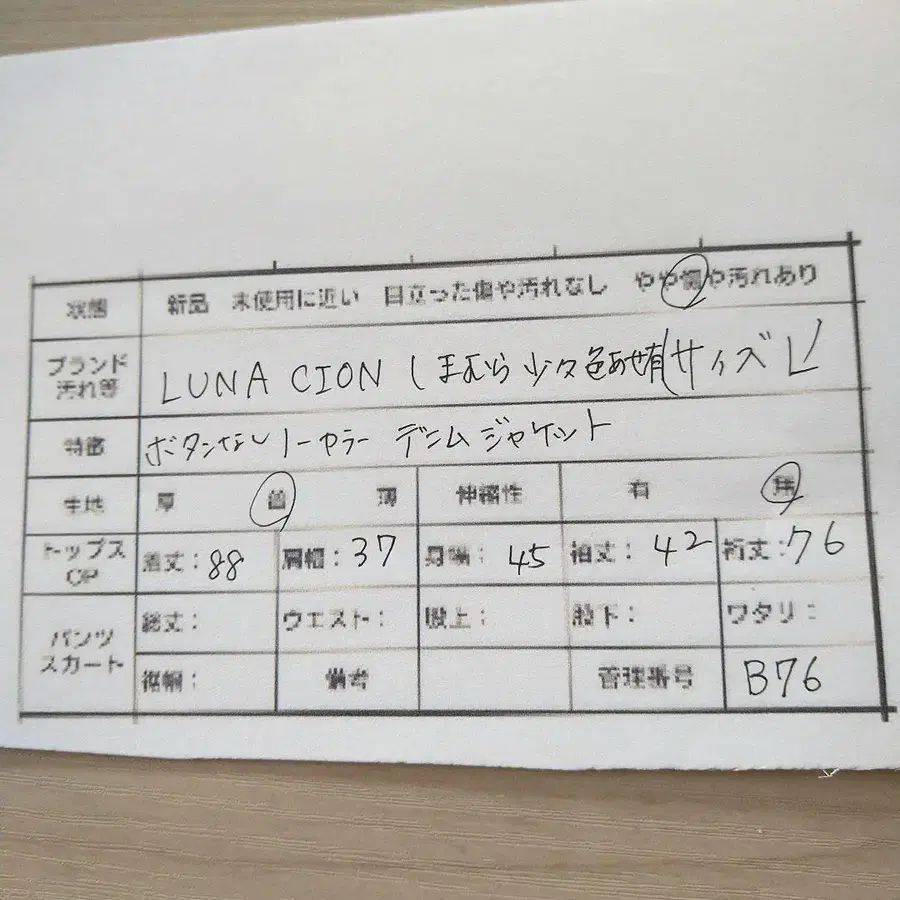 状態 新品 未使用に近い 目立った傷や汚れなし やや傷や汚れあり
ブランド 汚れ等 LUNA CION しまむら 少々色あせ有 サイズL
特徴 ボタンなしノーカラー デニムジャケット
生地 厚 普 薄 伸縮性 有 無
トップス OP 着丈:88 肩幅:37 身幅:45 袖丈:42 裄丈:76
パンツ スカート 総丈: ウエスト: 股上: 股下: ワタリ:
裾幅: 備考 管理番号 B76